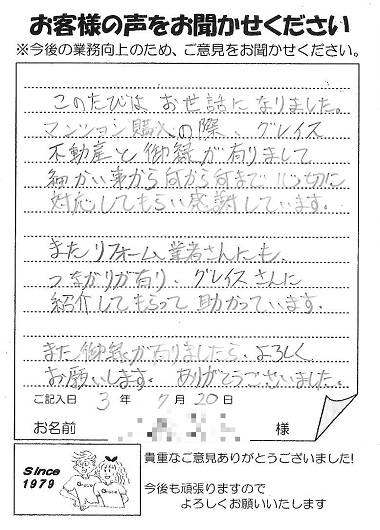 お客様の声をお聞かせください
※今後の業務向上のため、ご意見をお聞かせください。
このたびは お世話になりました。
マンション購入の際、グレイス
不動産と御縁が有りまして
細かい事から何から何まで 心切に
対応してもらい感謝しています。
またリフォーム業者さんにも、
つながりが有り、グレイスさんに
紹介してもらって助かっています。
また御縁が有りましたら、よろしく
お願いします。 ありがとうございました。
ご記入日 3 年 7 月 20 日
お名前 様
Since
1979
貴重なご意見ありがとうございました!
今後も頑張りますので
よろしくお願いいたします